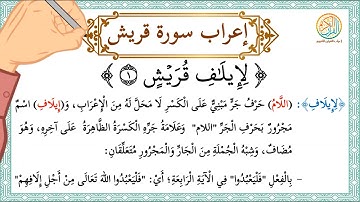 إعراب سورة قريش
﴿ لِإِيلَٰفِ قُرَيْشٍ ١ ﴾
﴿لِإِيلَافِ﴾: (اللَّامُ) حَرْفُ جَرٍّ مَبْنِيٌّ عَلَى الْكَسْرِ لَا مَحَلَّ لَهُ مِنَ الْإِعْرَابِ، وَ(إِيلَافِ) اسْمٌ
مَجْرُورٌ بِحَرْفِ الْجَرِّ "اللام" وَعَلَامَةُ جَرِّهِ الْكَسْرَةُ الظَّاهِرَةُ عَلَى آخِرِهِ، وَهُوَ
مُضَافٌ، وَشِبْهُ الْجُمْلَةِ مِنَ الْجَارِّ وَالْمَجْرُورِ مُتَعَلِّقَانِ:
- بِالْفِعْلِ "فَلْيَعْبُدُوا" فِي الْآيَةِ الرَّابِعَةِ؛ أَيْ: "فَلْيَعْبُدُوا اللَّهَ تَعَالَى مِنْ أَجْلِ إِلَافِهِمْ"